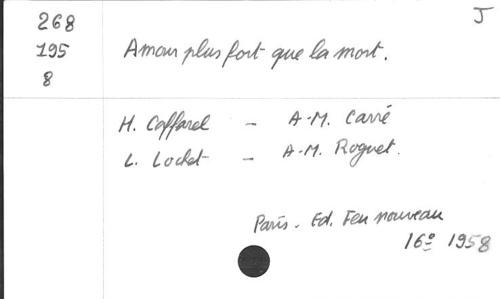 J
268
195
8
Amour plus fort que la mort.
H. Caffarel - A-M. Carré
L. Lochet - A-M. Roguet.
Paris. Ed. Feu nouveau
16° 1958